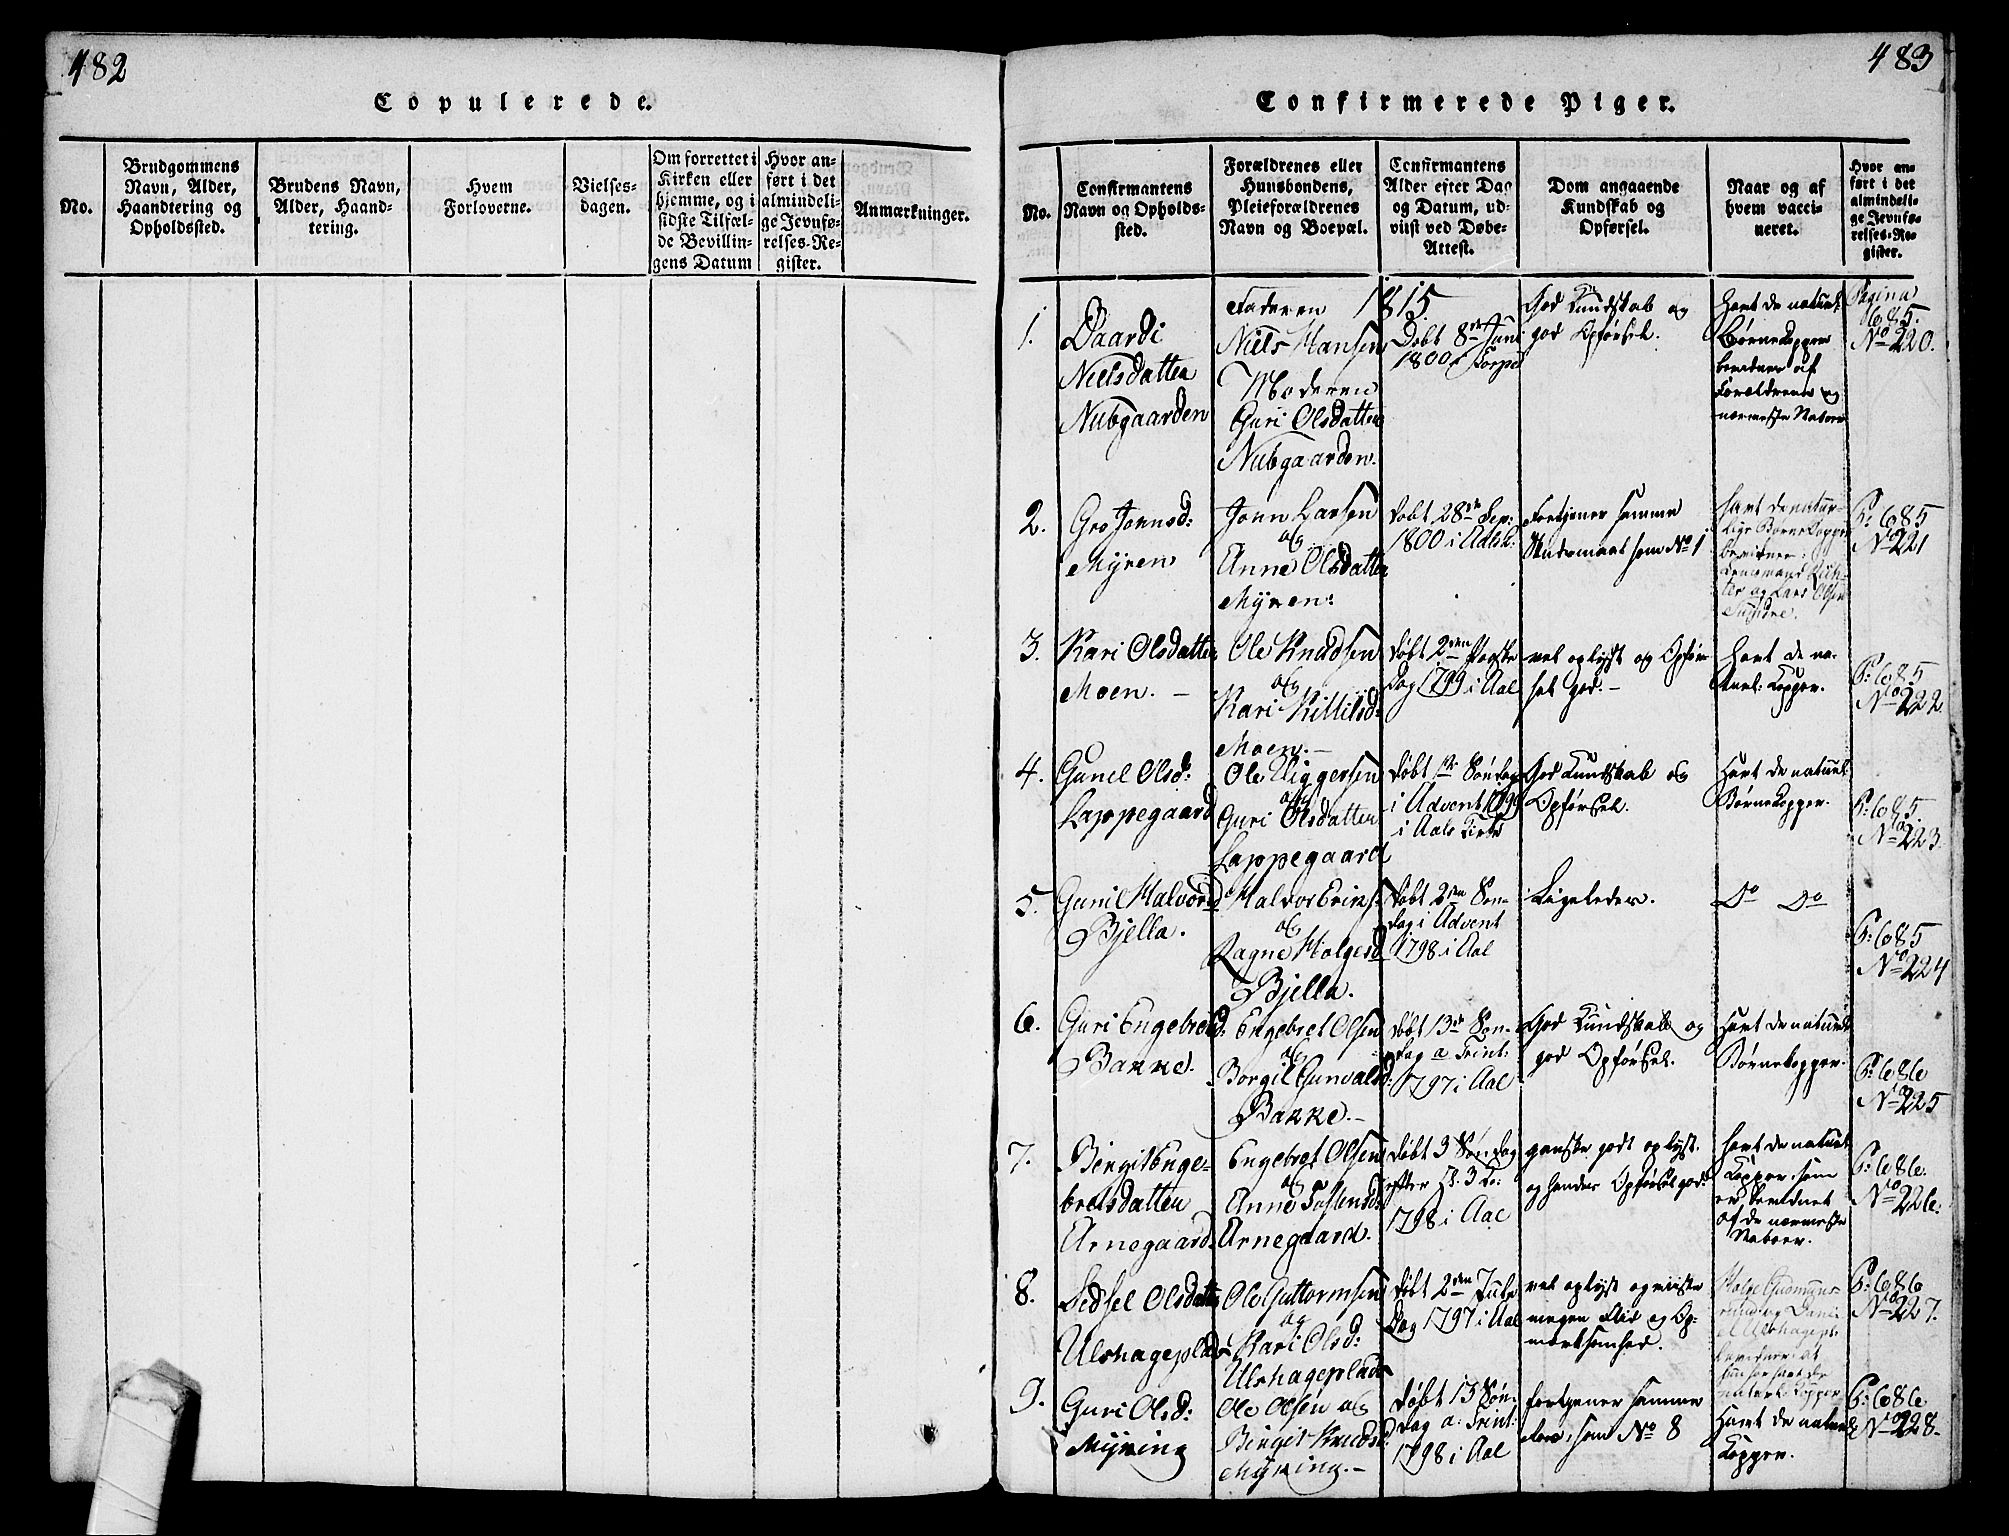 482
Copulerede.
No.
Brudgommens
Navn, Alder,
Haandtering og
Opholdssted.
Brudens Navn,
Alder, Haand-
tering.
Hvem
Forloverne.
Vielses-
dagen.
Om forrettet i
Kirken eller
hjemme, og i
sidste Tilfæl-
de Bevillin-
gens Datum
Hvor an-
ført i det
almindeli-
ge Jevnfø-
relses-Re-
gister.
Anmærkninger.
483
Confirmerede Piger.
No.
Confirmantens
Navn og Opholds-
sted.
Forældrenes eller
Huusbondens,
Pleieforældrenes
Navn og Boepæl.
Confirmantens
Alder efter Dag
og Datum, ud-
viist ved Døbe-
Attest.
Dom angaaende
Kundskab og
Opførsel.
Naar og af
hvem vacci-
neret.
Hvor an-
ført i det
almindeli-
ge Jevnfø-
relses-Re-
gister.
1815
1.
Daardi
Nielsdatter
Nubgaarden
Faderen
Niels Hansen
Moderen
Guri Olsdatter
Nubgaarden.
Døbt 8de Juni
1800 i Torpe
God Kundskab og
god Opførsel.
Havt de naturl:
Børnekopper
bevidner af
Forældrene og
nærmeste Naboer
Pagina
685.
No 220.
2.
Gro Jonnsd:
Myren
Jonn Larsen
og
Anne Olsdatter
Myren:
Døbt 28de Sep:
1800 i Aalsk:
Fortjener samme
Skudsmaal som No 1
Havt de natur-
lige Børnekopper
bevidner:
Lensmand
og Lars Olsen
Sundre.
P: 685
No 221
3.
Kari Olsdatter
Moen. -
Ole Knudsen
og
Kari Killilsd:
Moen. -
Døbt 2den Paaske
Dag 1799 i Aal
vel oplyst og Opfør-
sel god. -
Havt de na-
turl: Kopper.
P: 685
No 222.
4.
Gunel Olsd:
Lappegaard
Ole Viggersen
og
Guri Olsdatter
Lappegaard
Døbt 1ste Søndag
i Advent 1799
i Aals Kirke
God Kundskab og
Opførsel.
Havt de naturl:
Børnekopper.
P: 685.
No 223.
5.
Gunil Halvord
Bjella.
Halvor Erichs:
og
Ragne Holgerd
Bjella.
Døbt 2den Søn-
dag i Advent
1798 i Aal
Ligeledes.
Do Do
P: 685
No 224
6.
Guri Engebretd:
Bakke.
Engebret Olsen
og
Borgil Gunvalsd:
Bakke. -
Døbt 13de Søn-
dag a Trint:
1797 i Aal
God Kundskab og
god Opførsel.
Havt de naturl:
Børnekopper.
P: 686
No 225
7.
Birgit Enge-
bretsdatter
Arnegaard.
Engebret Olsen
og
Anne Tostensd:
Arnegaard.
Døbt 3 Søndag
efter H. 3 K:
1798 i Aal
ganske godt oplyst.
og hendes Opførsel god:
Havt de naturl:
Kopper, som
er bevidnet
af de nærmeste
Naboer.
P: 686.
No 226.
8.
Sidsel Olsdatter
Ulshageplads
Ole Guttormsen
og
Kari Olsd:
Ulshageplads
Døbt 2den Jule
Dag 1797 i Aal
vel oplyst og viiste
megen Flid og Op-
mærksomhed.
P: 686
No 227.
9.
Guri Olsd:
Myking
Ole Olsen og
Birgit Knudsd:
Myking. -
Døbt 13 Søn-
dag a: Trint:
1798 i Aal
Fortjener samme
som No 8
Havt de naturl:
Kopper.
P: 686
No 228.